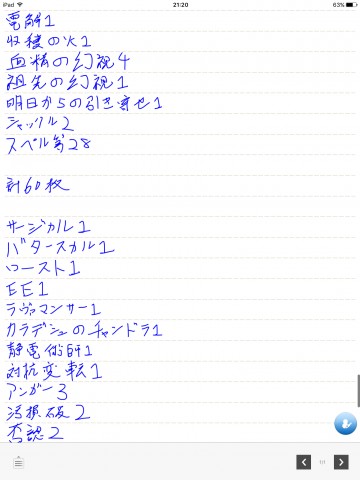 iPad 21:20 63%
電解1
収穫の火1
血清の幻視4
祖先の幻視1
明日からの引き寄せ1
シャックル2
スペル等28
計60枚
サージカル1
バタースカル1
ロースト1
EE1
ラヴァマンサー1
カラデシュのチャンドラ1
静電術師1
対抗変転1
アンガー3
汚損破2
否認2